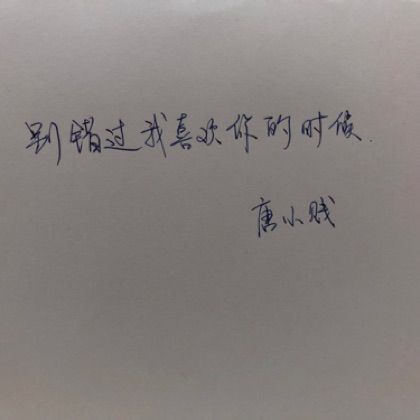 别错过我喜欢你的时候.
唐小贱